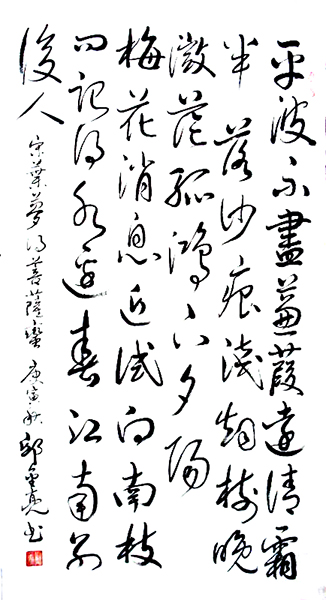 平波不盡蒹葭遠清霜
半落沙痕淺烟樹晚
微茫孤鴻下夕陽
梅花消息近試向南枝
問記得水邊春江南別
後人
宋葉夢得菩薩蠻 庚寅秋 邱亮書